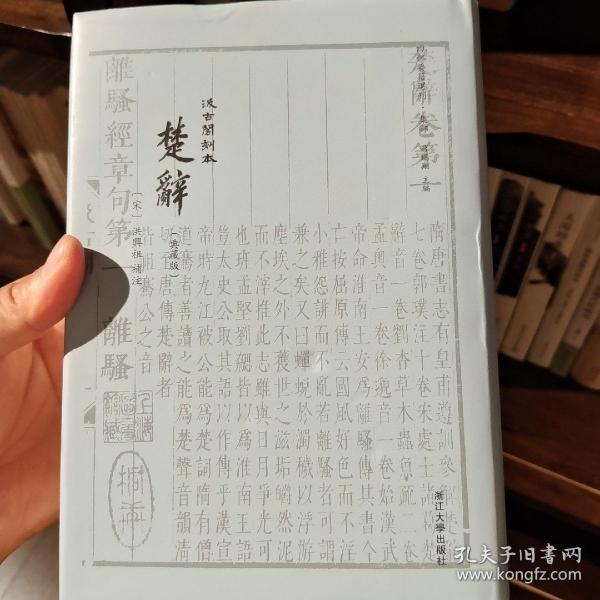 汲古閣刻本
楚辭
（典藏版）
［宋］洪興祖 補注
浙江大學出版社
楚辭卷第一
離騷經章句第一 離騷
隋唐書志有皇甫遵訓參解楚
七卷郭璞注十卷宋處士諸葛楚
辭音一卷劉杳草木蟲魚疏二卷
孟奧音一卷徐邈音一卷始漢武
帝命淮南王安為離騷傳其書今
亡按屈原傳云國風好色而不淫
小雅怨誹而不亂若離騷者可謂
兼之矣又曰蟬蛻於濁穢以浮游
塵埃之外不獲世之滋垢皭然泥
而不滓推此志雖與日月爭光可
也班孟堅劉勰皆以為淮南王語
豈太史公取其語以作傳乎漢宣
帝時九江被公能為楚詞隋有僧
道騫者善讀之能為楚聲音韻清
切至唐傳楚辭者
皆祖騫公之音
孔夫子旧书网
www.kongfz.com